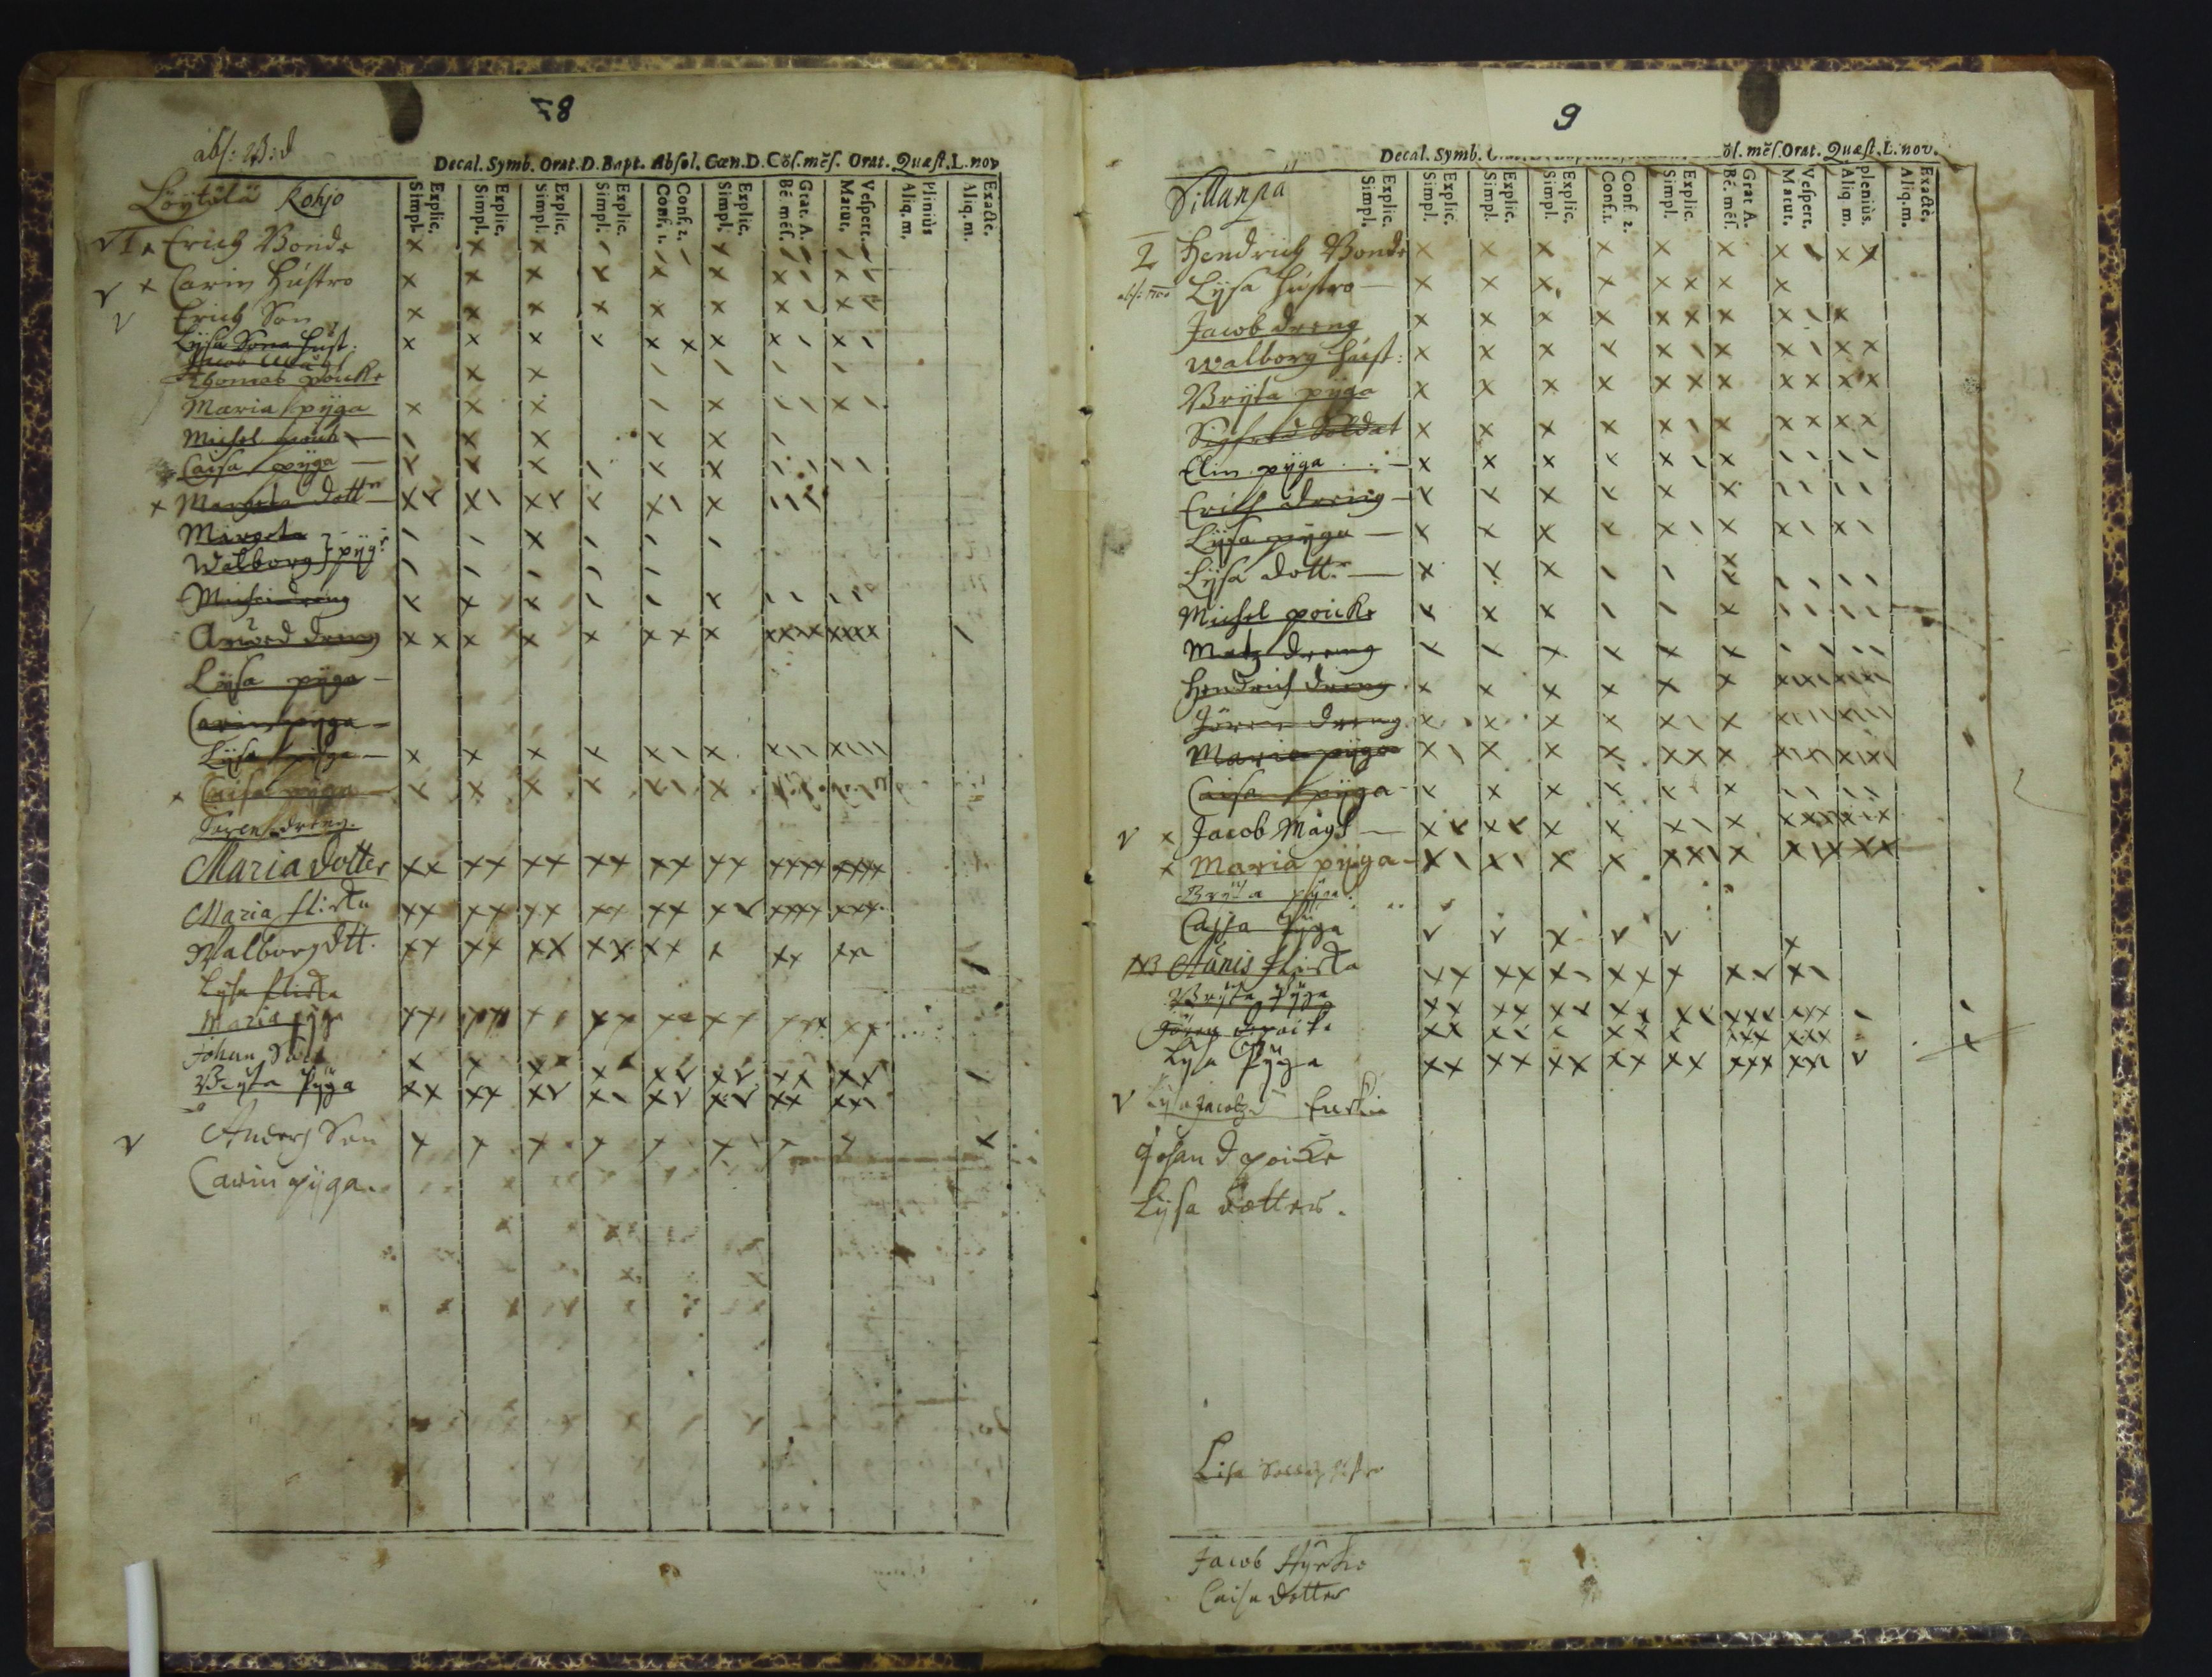 78
abs: B: d
Decal. Symb. Orat. D. Bapt. Absol. Cœn. D. Cõf. mẽs. Orat. Quæst. L. nov
Löytölä Kohjo
Explic. Simpl. Explic. Simpl. Explic. Simpl. Explic. Simpl. Conf. 2. Conf. 1. Explic. Simpl. Grat. A. Bé. mẽs. Vespert. Matut. Plinius Aliq. m. Exacte. Aliq. m.
1 Erich Bonde
Carin hustro
Erich Son
Lysa Sona hust:
Thomas poicke
Maria pyga
Michel
Caisa pyga
Margeta dottr
Margeta
Walborg pyg:
Michel dreng
Arwed dreng
Lysa pyga
Carin pyga
Lysa pyga
Caisa pyga
Sören dreng.
Maria dotter
Maria flicka
Walborg dtt.
Lysa flicka
Maria pyga
Johan
Bryta Pyga
Anders Son
Carin pyga.
9
Decal. Symb. öf. mẽs. Orat. Quæst. L. nov.
Sillanpä
Explic. Simpl. Explic. Simpl. Explic. Simpl. Explic. Simpl. Conf. 2. Conf. 1. Explic. Simpl. Grat A. Bé. mẽs. Vespert. Matut. plenius. Aliq. m. Exacte. Aliq. m.
2 Hendrich Bonde
Lysa hustro
Jacob dreng
Walborg hust:
Bryta pyga
Sigfred Soldat
Elin pyga
Erich dreng
Lysa pyga
Lysa dottr
Michel poicke
Matz dreng
Hendrich dreng
Jören dreng
Maria pyga
Caisa pyga
Jacob Mågh
Maria pyga
Bryta pyga
Cajsa Pyga
NB Aunis flicka
Bryta Pyga
Jören
Lysa Pyga
Lysa Jacobz d
Johan d poicke
Lysa dotter.
Lisa
Jacob Hyrko
Caisa dotter